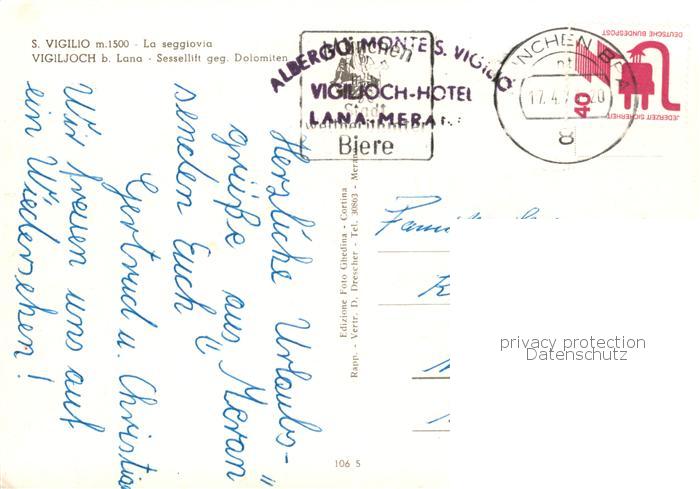 S. VIGILIO m.1500 - La seggiovia
VIGILJOCH b. Lana - Sessellift geg. Dolomiten
ALBERGO MONTE S. VIGILIO
VIGILJOCH-HOTEL
LANA-MERAN
München
Stadt
weltberühmter
Biere
MÜNCHEN BPA
17.4.
20
8
40
DEUTSCHE BUNDESPOST
JEDERZEIT SICHERHEIT
Herzliche Urlaubs-
grüße aus Meran
senden Euch
Gertrud u. Christian
Wir freuen uns auf
ein Wiedersehen!
Edizione Foto Ghedina - Cortina
Rapp. - Vertr. D. Drescher - Tel. 30863 - Meran
106 5
privacy protection
Datenschutz